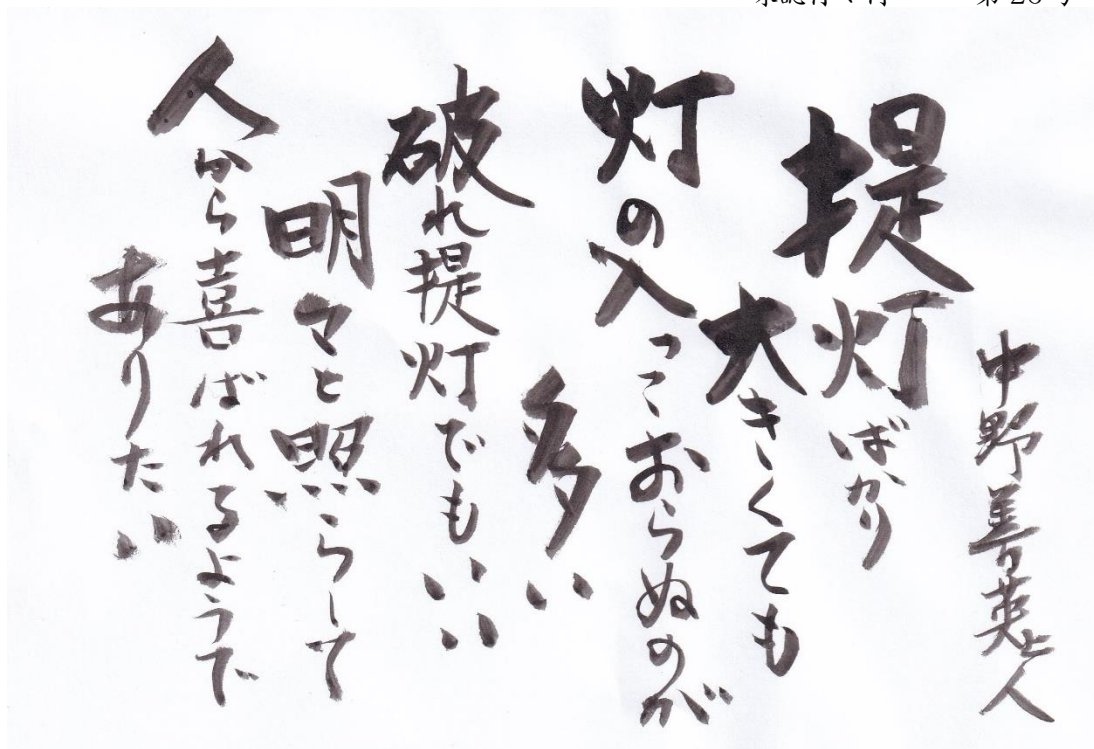 中野善英上人
提灯ばかり
大きくても
灯の入っておらぬのが
多い
破れ提灯でもいい
明々と照らして
人から喜ばれるようで
ありたい